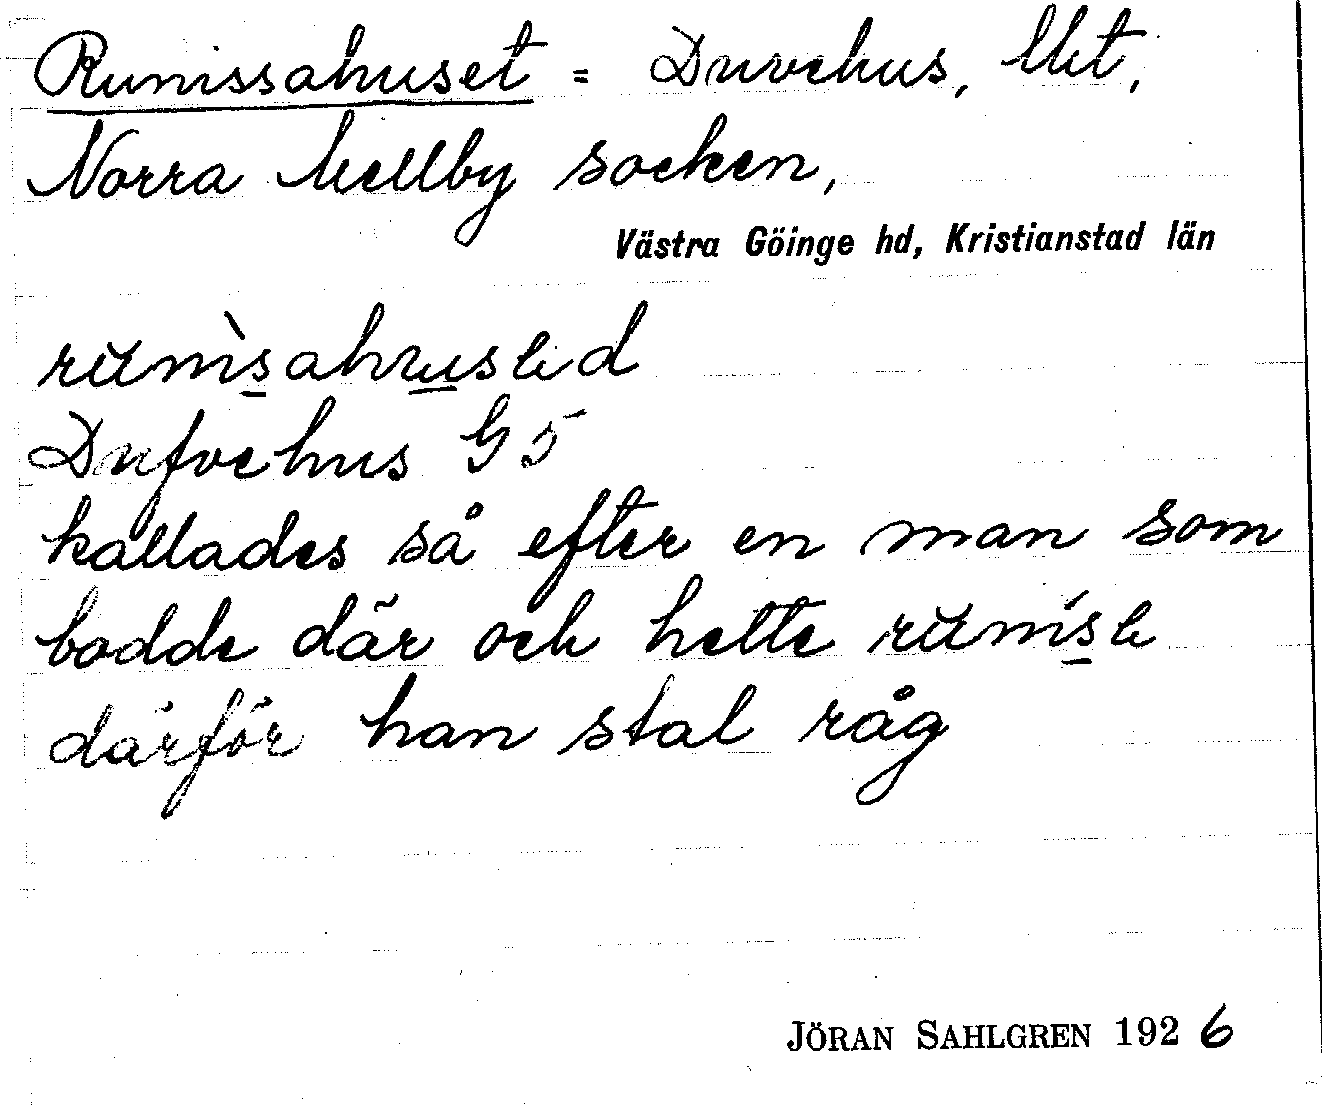 Runissahuset = Duvehus, llht,
Norra Mellby socken,
Västra Göinge hd, Kristianstad län
Dufvehus G5
kallades så efter en man som
bodde där och hette
därför han stal råg
JÖRAN SAHLGREN 1926